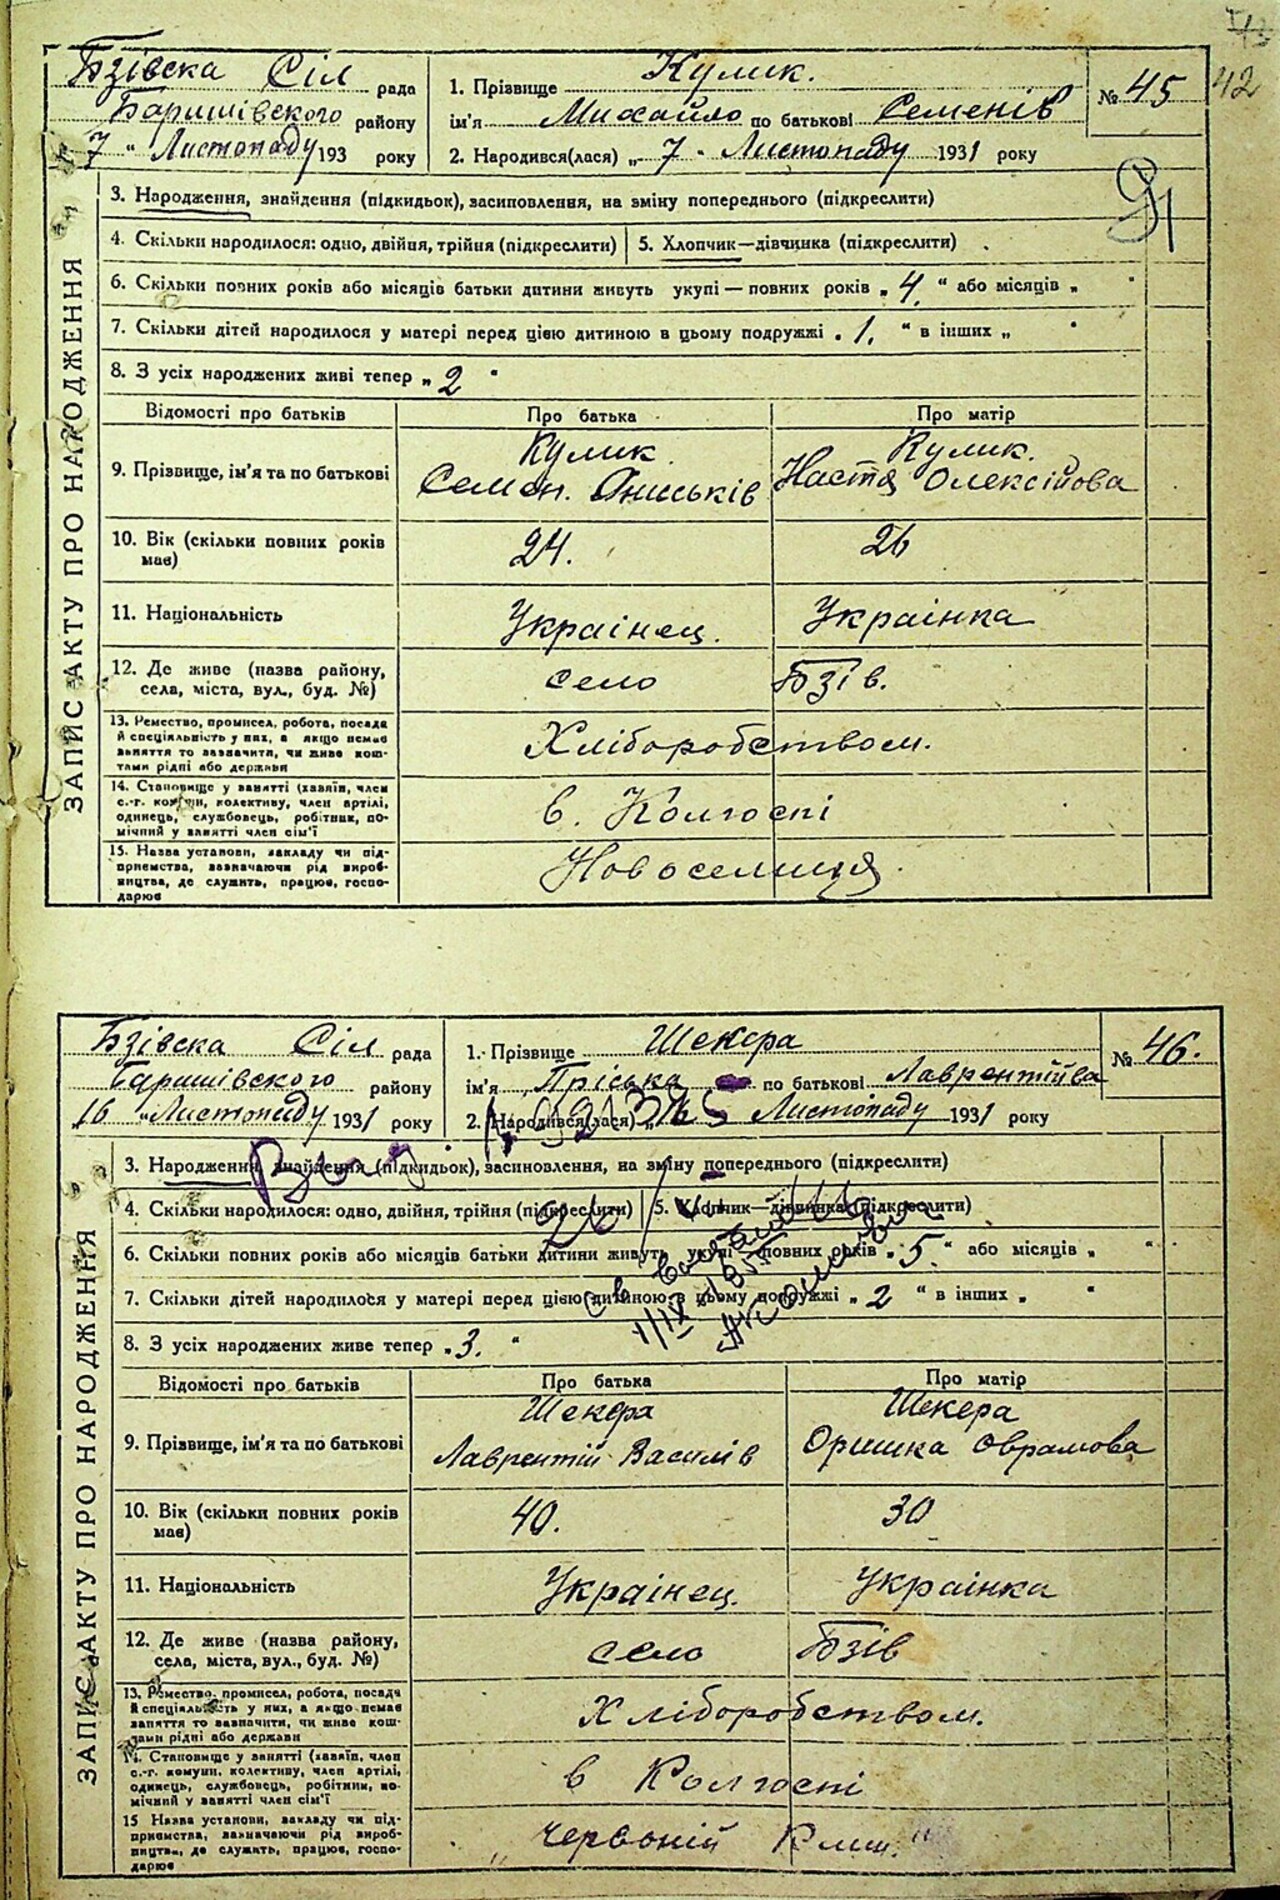 42
Бзівска Сіл рада
Баришівского району
7 " Листопаду 193 року
1. Прізвище Кулик.
ім'я Михайло по батькові Семенів
2. Народився(лася) „ 7 " Листопаду 1931 року
№ 45
ЗАПИС АКТУ ПРО НАРОДЖЕННЯ
3. Народження, знайдення (підкидьок), засиповлення, на зміну попереднього (підкреслити)
4. Скільки народилося: одно, двійня, трійня (підкреслити) 5. Хлопчик—дівчинка (підкреслити)
6. Скільки повних років або місяців батьки дитини живуть укупі — повних років „ 4. " або місяців „ "
7. Скільки дітей народилося у матері перед цією дитиною в цьому подружжі „ 1. " в інших „ "
8. З усіх народжених живі тепер „ 2 "
Відомості про батьків Про батька Про матір
9. Прізвище, ім'я та по батькові
Кулик. Семен. Ониськів
Кулик. Настя Олексійова
10. Вік (скільки повних років має) 24. 26
11. Національність Украінец. Украінка
12. Де живе (назва району,
села, міста, вул., буд. №) село Бзів.
13. Ремество, промисел, робота, посада
й спеціальність у них, а якщо немає
заняття то зазначити, чи живе кош-
тами рідні або держави
Хліборобством.
14. Становище у занятті (хазяїн, член
с.-г. комуни, колективу, член артілі,
одинець, службовець, робітник, по-
мічний у занятті член сім'ї
в. Колгоспі
15. Назва установи, закладу чи під-
приємства, зазначаючи рід вироб-
ництва, де служить, працює, госпо-
дарює
Новоселиця.
Бзівска Сіл рада
Баришівского району
16 " Листопаду 1931 року
1. Прізвище Шекера
ім'я Пріська по батькові Лаврентійва
2. Народився(лася) „ Листопаду 1931 року
№ 46.
ЗАПИС АКТУ ПРО НАРОДЖЕННЯ
3. Народження, знайдення (підкидьок), засиновлення, на зміну попереднього (підкреслити)
4. Скільки народилося: одно, двійня, трійня (підкреслити) 5. Хлопчик—дівчинка (підкреслити)
6. Скільки повних років або місяців батьки дитини живуть укупі — повних років „ 5. " або місяців „ "
7. Скільки дітей народилося у матері перед цією дитиною в цьому подружжі „ 2 " в інших „ "
8. З усіх народжених живе тепер „ 3. "
Відомості про батьків Про батька Про матір
9. Прізвище, ім'я та по батькові
Шекера Лаврентій Василів
Шекера Оришка Оврамова
10. Вік (скільки повних років має) 40. 30
11. Національність Украінец. Украінка
12. Де живе (назва району,
села, міста, вул., буд. №) село Бзів
13. Ремество, промисел, робота, посада
й спеціальність у них, а якщо немає
заняття то зазначити, чи живе кош-
тами рідні або держави
Хліборобством.
14. Становище у занятті (хазяїн, член
с.-г. комуни, колективу, член артілі,
одинець, службовець, робітник, по-
мічний у занятті член сім'ї
в Колгоспі
15 Назва установи, закладу чи під-
приємства, зазначаючи рід вироб-
ництва, де служить, працює, госпо-
дарює
„Червоній Клин."